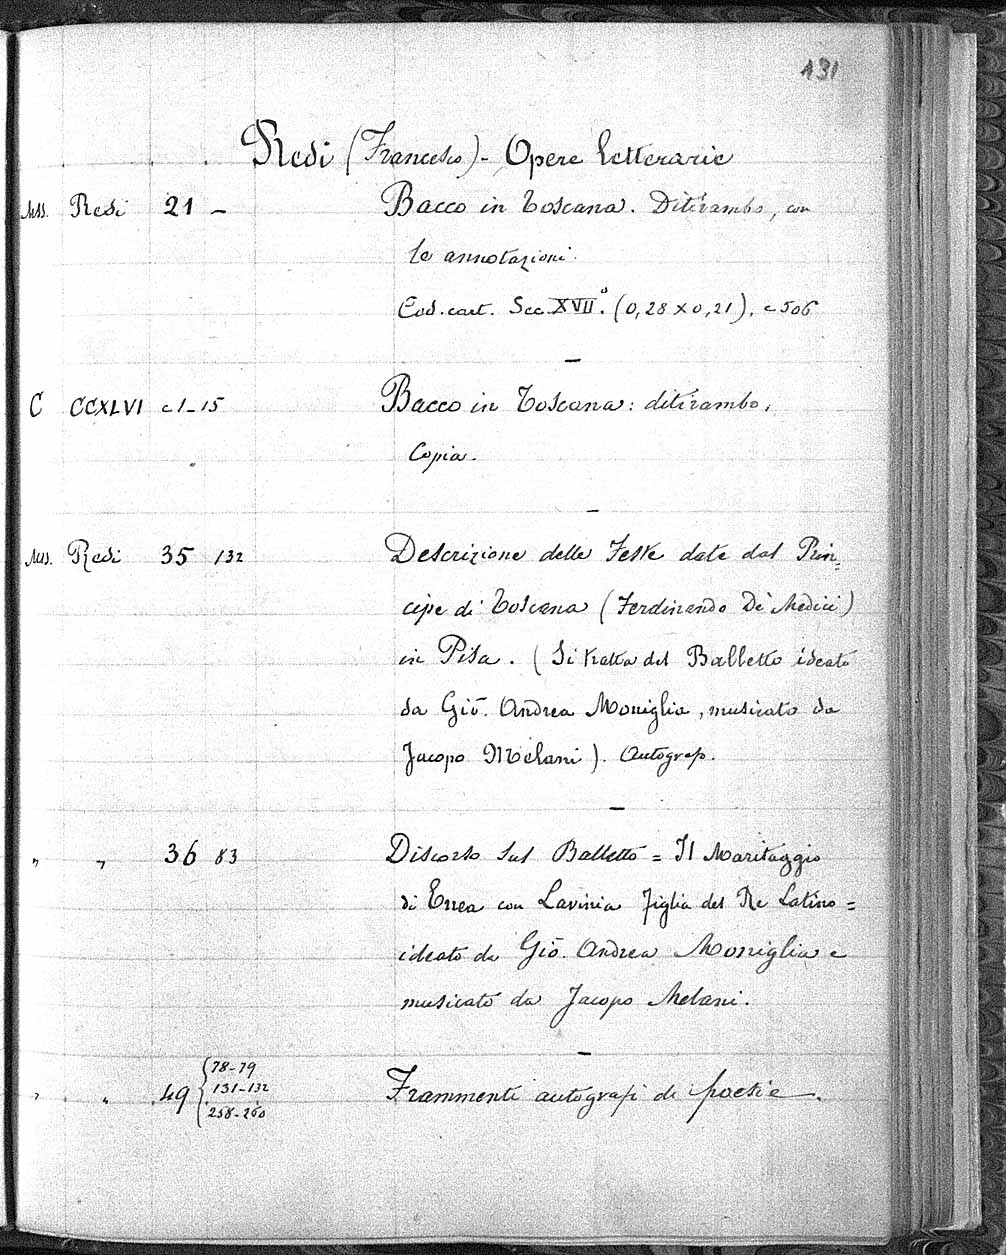 131
Redi (Francesco) - Opere letterarie
Mss. Redi 21 - Bacco in Toscana. Ditirambo, con
le annotazioni.
Cod. cart. Sec. XVII°. (0,28 X 0,21). c 506
C CCXLVI c 1-15 Bacco in Toscana: ditirambo,
Copia.
Mss. Redi 35 132 Descrizione delle Feste date dal Prin=
cipe di Toscana (Ferdinando De' Medici)
in Pisa. (Si tratta del Balletto ideato
da Giō. Andrea Moniglia, musicato da
Jacopo Melani). Autograf.
" " 36 83 Discorso sul Balletto = Il Maritaggio
di Enea con Lavinia figlia del Re Latino =
ideato da Giō. Andrea Moniglia e
musicato da Jacopo Melani.
" " 49 { 78-79
131-132
258-260
Frammenti autografi di poesie.